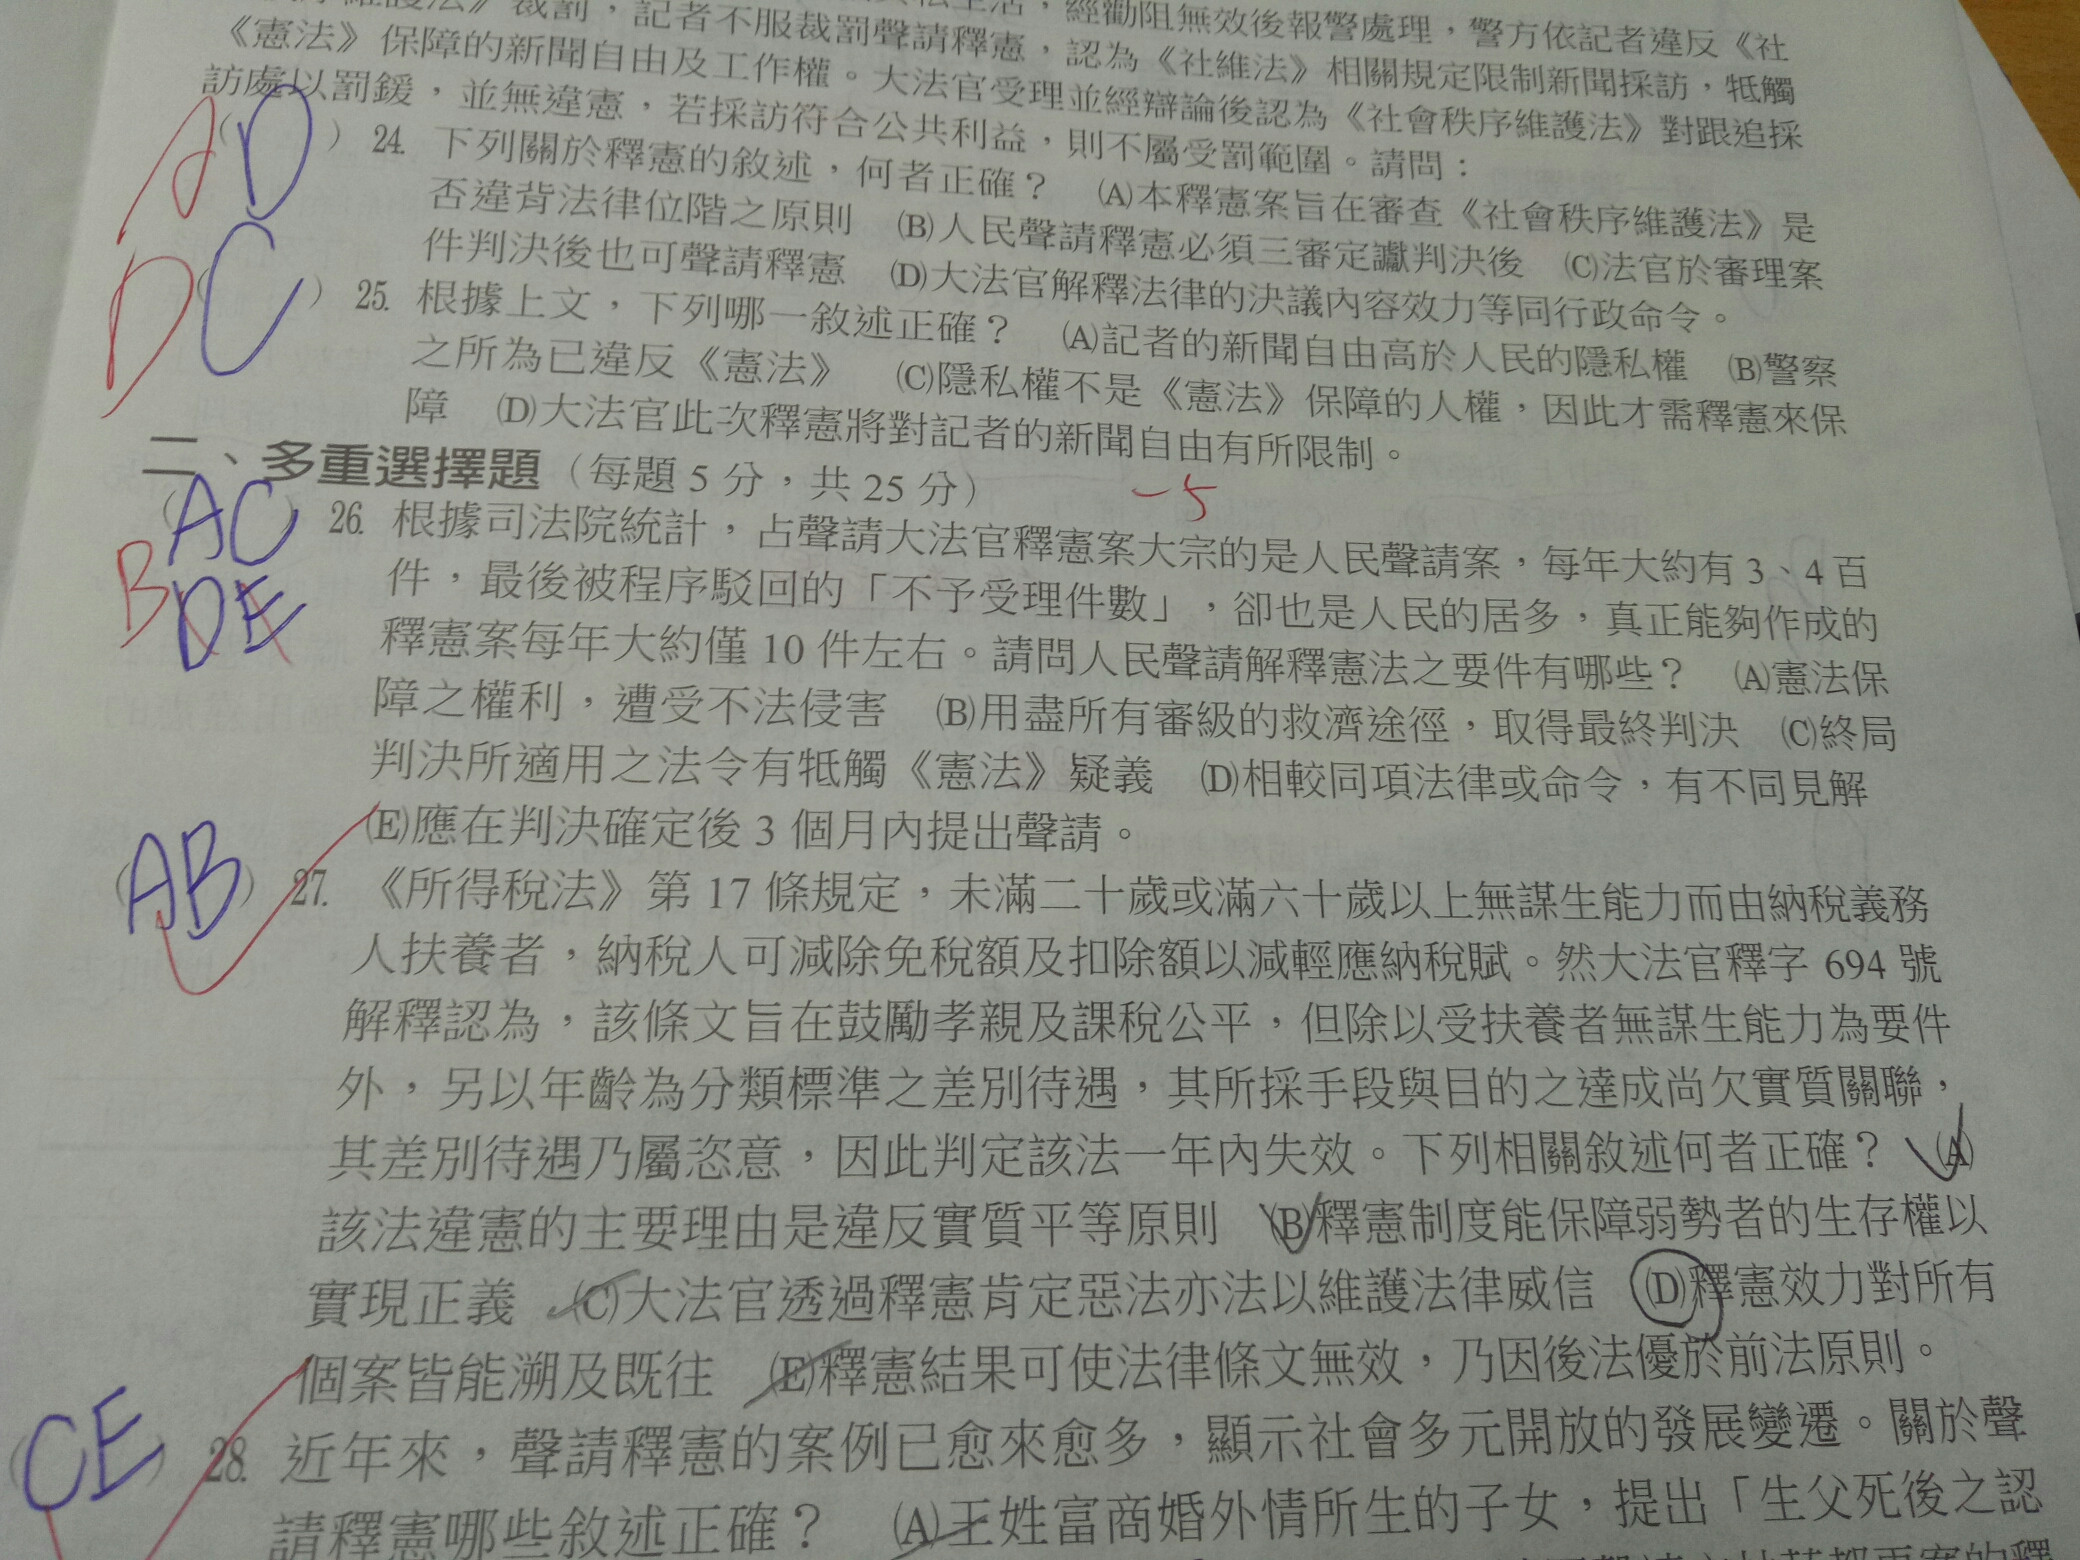 維護法》裁罰，記者不服裁罰聲請釋憲，認為《社維法》相關規定限制新聞採訪，牴觸
經勸阻無效後報警處理，警方依記者違反《社
《憲法》保障的新聞自由及工作權。大法官受理並經辯論後認為《社會秩序維護法》對跟追採
訪處以罰鍰，並無違憲，若採訪符合公共利益，則不屬受罰範圍。請問：
A D
( ) 24. 下列關於釋憲的敘述，何者正確？ (A)本釋憲案旨在審查《社會秩序維護法》是
否違背法律位階之原則 (B)人民聲請釋憲必須三審定讞判決後 (C)法官於審理案
件判決後也可聲請釋憲 (D)大法官解釋法律的決議內容效力等同行政命令。
D C
( ) 25. 根據上文，下列哪一敘述正確？ (A)記者的新聞自由高於人民的隱私權 (B)警察
之所為已違反《憲法》 (C)隱私權不是《憲法》保障的人權，因此才需釋憲來保
障 (D)大法官此次釋憲將對記者的新聞自由有所限制。
二、多重選擇題（每題 5 分，共 25 分）
-5
AC
B DE
( ) 26. 根據司法院統計，占聲請大法官釋憲案大宗的是人民聲請案，每年大約有 3、4 百
件，最後被程序駁回的「不予受理件數」，卻也是人民的居多，真正能夠作成的
釋憲案每年大約僅 10 件左右。請問人民聲請解釋憲法之要件有哪些？ (A)憲法保
障之權利，遭受不法侵害 (B)用盡所有審級的救濟途徑，取得最終判決 (C)終局
判決所適用之法令有牴觸《憲法》疑義 (D)相較同項法律或命令，有不同見解
(E)應在判決確定後 3 個月內提出聲請。
(AB) 27. 《所得稅法》第 17 條規定，未滿二十歲或滿六十歲以上無謀生能力而由納稅義務
人扶養者，納稅人可減除免稅額及扣除額以減輕應納稅賦。然大法官釋字 694 號
解釋認為，該條文旨在鼓勵孝親及課稅公平，但除以受扶養者無謀生能力為要件
外，另以年齡為分類標準之差別待遇，其所採手段與目的之達成尚欠實質關聯，
其差別待遇乃屬恣意，因此判定該法一年內失效。下列相關敘述何者正確？ (A)
該法違憲的主要理由是違反實質平等原則 (B)釋憲制度能保障弱勢者的生存權以
實現正義 (C)大法官透過釋憲肯定惡法亦法以維護法律威信 (D)釋憲效力對所有
個案皆能溯及既往 (E)釋憲結果可使法律條文無效，乃因後法優於前法原則。
(CE) 28. 近年來，聲請釋憲的案例已愈來愈多，顯示社會多元開放的發展變遷。關於聲
請釋憲哪些敘述正確？ (A)王姓富商婚外情所生的子女，提出「生父死後之認